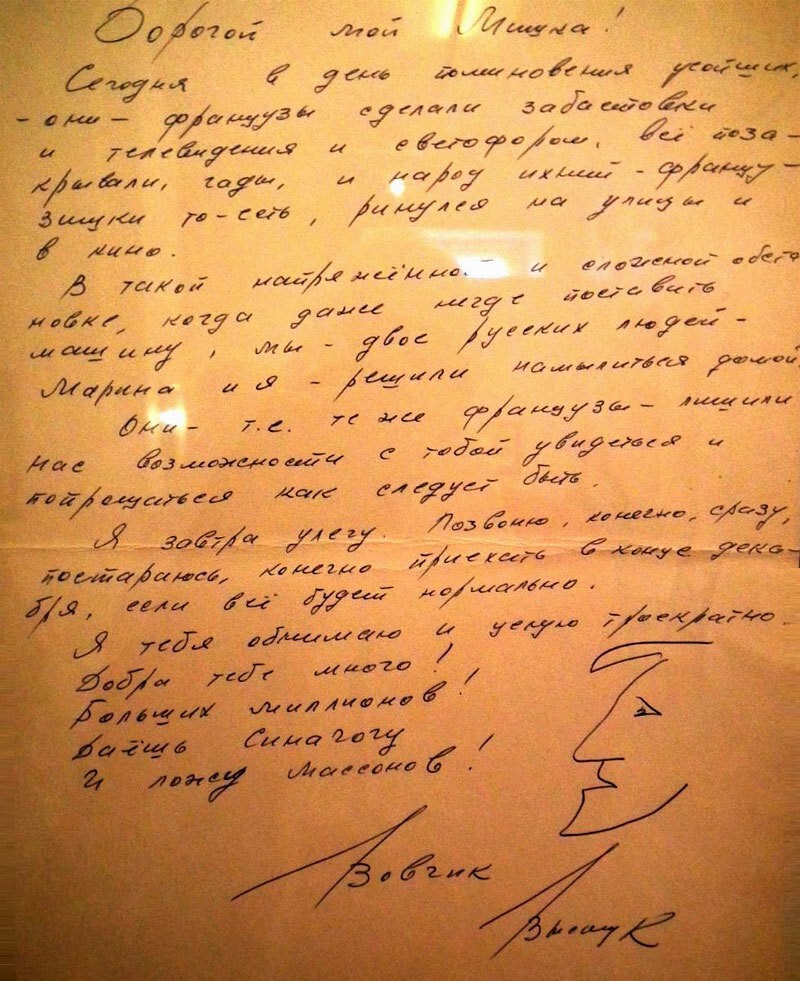 Дорогой мой Мишка!
Сегодня в день поминовения усопших,
- они - французы сделали забастовки
и телевидения и светофором. Всё поза-
крывали, гады, и народ ихний - францу-
зишки то-есть, ринулся на улицы и
в кино.
В такой напряжённой и сложной обста
новке, когда даже негде поставить
машину, мы - двое русских людей -
Марина и я - решили намылиться домой.
Они - т.е. те же французы - лишили
нас возможности с тобой увидеться и
попрощаться как следует быть.
Я завтра улечу. Позвоню, конечно, сразу,
постараюсь, конечно приехать в конце дека-
бря, если всё будет нормально.
Я тебя обнимаю и целую троекратно.
Добра тебе много!
Больших миллионов!
Даёшь Синагогу
И ложу Массонов!
Вовчик
Высоцк